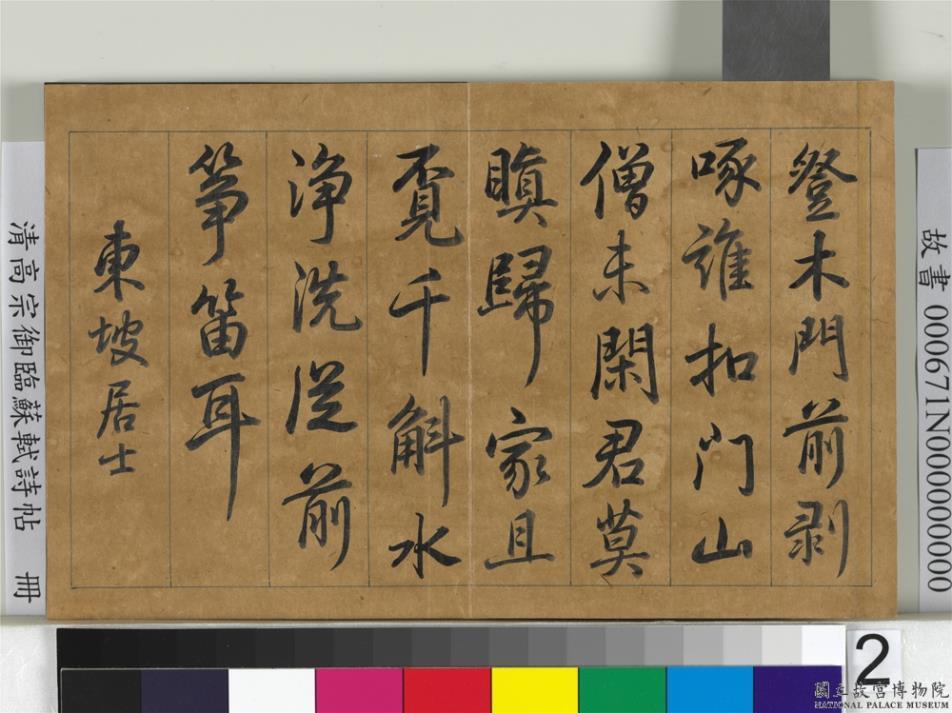 登木門前剥
啄誰扣门山
僧未閑君莫
瞋歸家且
覔千斛水
浄洗従前
箏笛耳
東坡居士
故書 000671N000000000
清高宗御臨蘇軾詩帖 冊
2
國立故宮博物院
NATIONAL PALACE MUSEUM